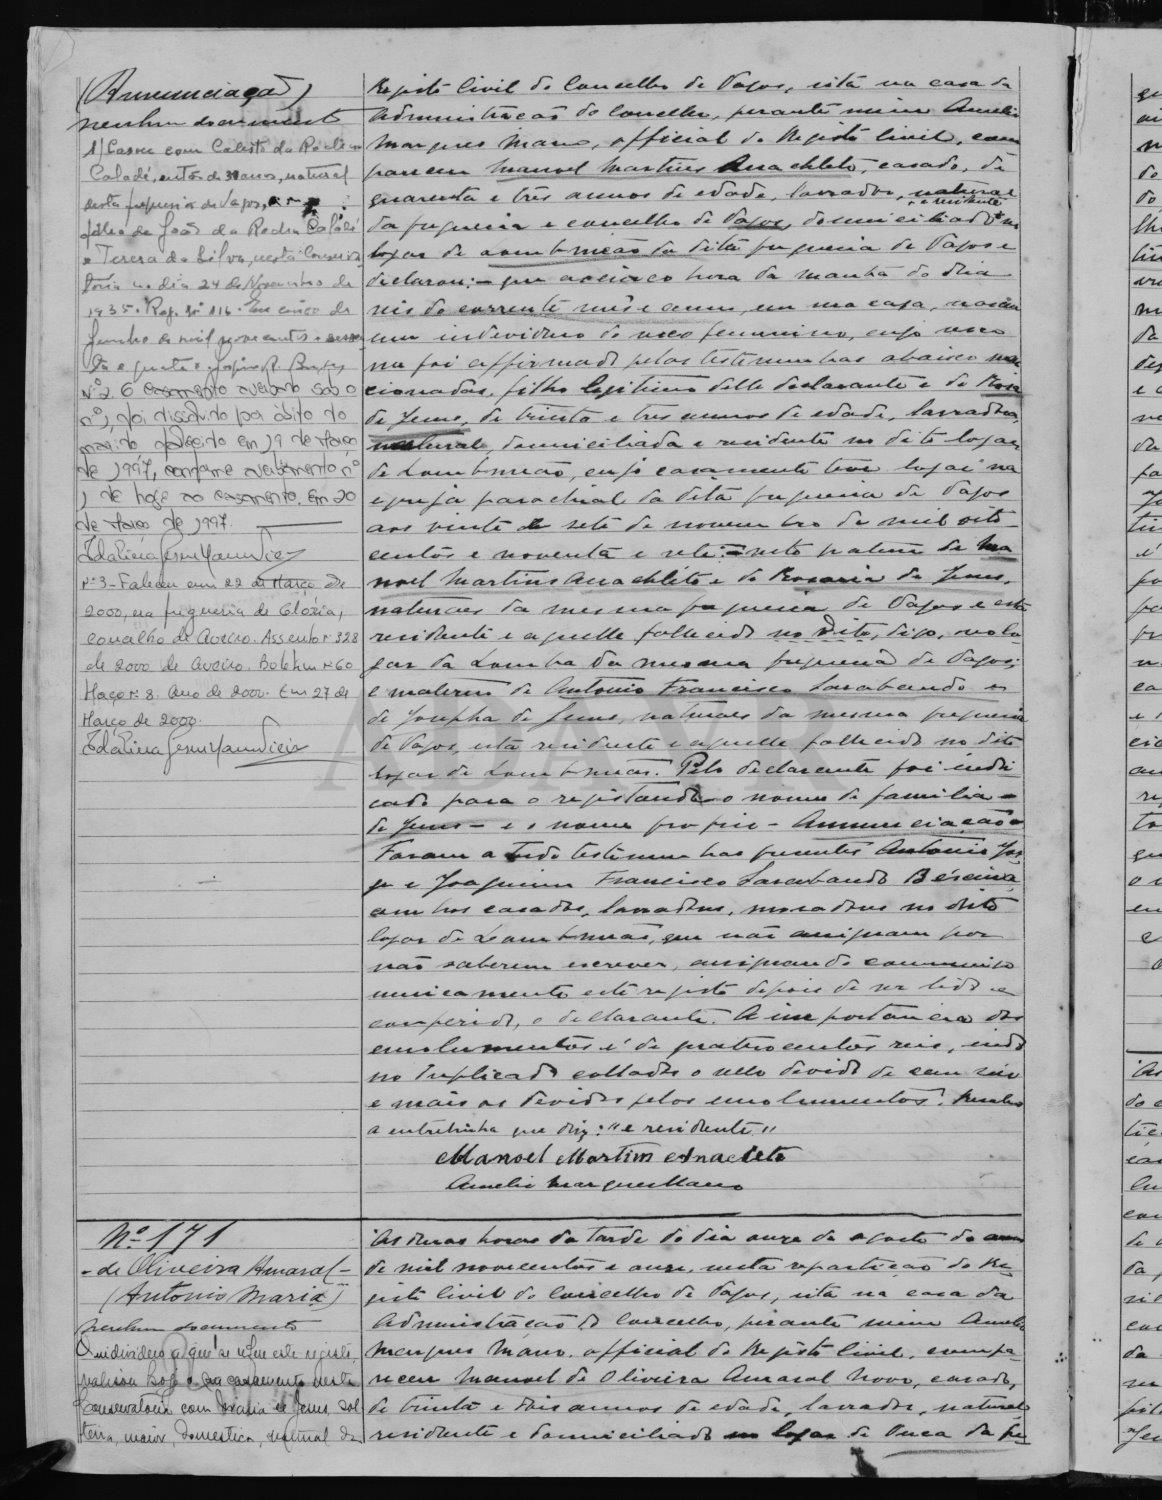 (Annunciaçaõ)
nenhum documento
1) Casou com Calisto da Rocha
Caladé, então de 31 anos, natural
desta freguesia de Vagos,
filho de João da Rocha Caladé
e Teresa da Silva, nesta Conserva
tória no dia 24 de Novembro de
1935. Reg. Nº 116. Em cinco de
Junho de mil novecentos e sessen
ta e quatro
Nº 2. O casamento averbado sob o
nº 1, foi dissolvido por óbito do
marido falecido em 19 de Março
de 1997, conforme averbamento nº
1 de hoje ao casamento. Em 20
de Março de 1997.
Nº 3 - Faleceu em 22 de Março de
2000, na freguesia de Glória,
concelho de Aveiro. Assento nº 328
de 2000 de Aveiro. Boletim nº 60
Maço nº 8. Ano de 2000. Em 27 de
Março de 2000.
Registo Civil do Concelho de Vagos, sita na casa da
Administração do Concelho, perante mim Amelio
Marques Mano, official do Registo Civil, com
pareceu Manoel Martins Anachleto, casado, de
quarenta e três annos de edade, lavrador, natural
e residente
da freguesia e concelho de Vagos, domiciliado no
logar de Lombomeão da dita freguesia de Vagos e
declarou: - que a cinco hora da manhã do dia
seis do corrente mês e anno, em sua casa, nasceu
um individuo do sexo femenino, cujo sexo
me foi affirmado pelas testemunhas abaixo men
cionadas, filho legitimo delle declarante e de Rosa
de Jesus, de trinta e tres annos de edade, lavradora,
natural, domiciliada e residente no dito logar
de Lombomeão, cujo casamento teve logar na
egreja parochial da dita freguesia de Vagos
aos vinte e sete de novembro de mil oito
centos e noventa e sete: - neto paterno de Ma
noel Martins Anachleto e de Rosaria de Jesus,
naturaes da mesma freguesia de Vagos e esta
residente e aquelle fallecido no dito, digo, no lo
gar da Lomba da mesma freguesia de Vagos;
e materno de Antonio Francisco Sarabando e
de Josepha de Jesus, naturaes da mesma freguesia
de Vagos, esta residente e aquelle fallecido no dito
logar de Lombomeão. Pelo declarante foi indi
cado para o registando o nome de familia -
de Jesus - e o nome proprio - Annunciação -
Foram a tudo testemunhas presentes Antonio Jor
ge e Joaquim Francisco Sarabando
ambos casados, lavradores, moradores no dito
logar de Lombomeão, que não assignam por
não saberem escrever, assignando commigo
unicamente este registo depois de ser lido e
conferido, o declarante. A importancia dos
emolumentos é de quatrocentos reis, indo
no duplicado collados o sello devido de cem reis
e mais os devidos pelos emolumentos. Resalvo
a entrelinha que diz: "e residente"
Manoel Martins Anacleto
Amelio Marques Mano
ADAVR
Nº 171
- de Oliveira Amaral -
(Antonio Maria)
nenhum documento
O individuo a que se refere este registo,
realisou hoje o seu casamento nesta
Conservatoria com Maria de Jesus, sol
teira, maior, domestica, natural da
Ás duas horas da tarde do dia onze de agosto do anno
de mil novecentos e onze, nesta repartição do Re
gisto Civil do Concelho de Vagos, sita na casa da
Administração do Concelho, perante mim Amelio
Marques Mano, official do Registo Civil, compa-
receu Manoel de Oliveira Amaral Novo, casado,
de trinta e dois annos de edade, lavrador, natural
residente e domiciliado no logar de Ouca da fre